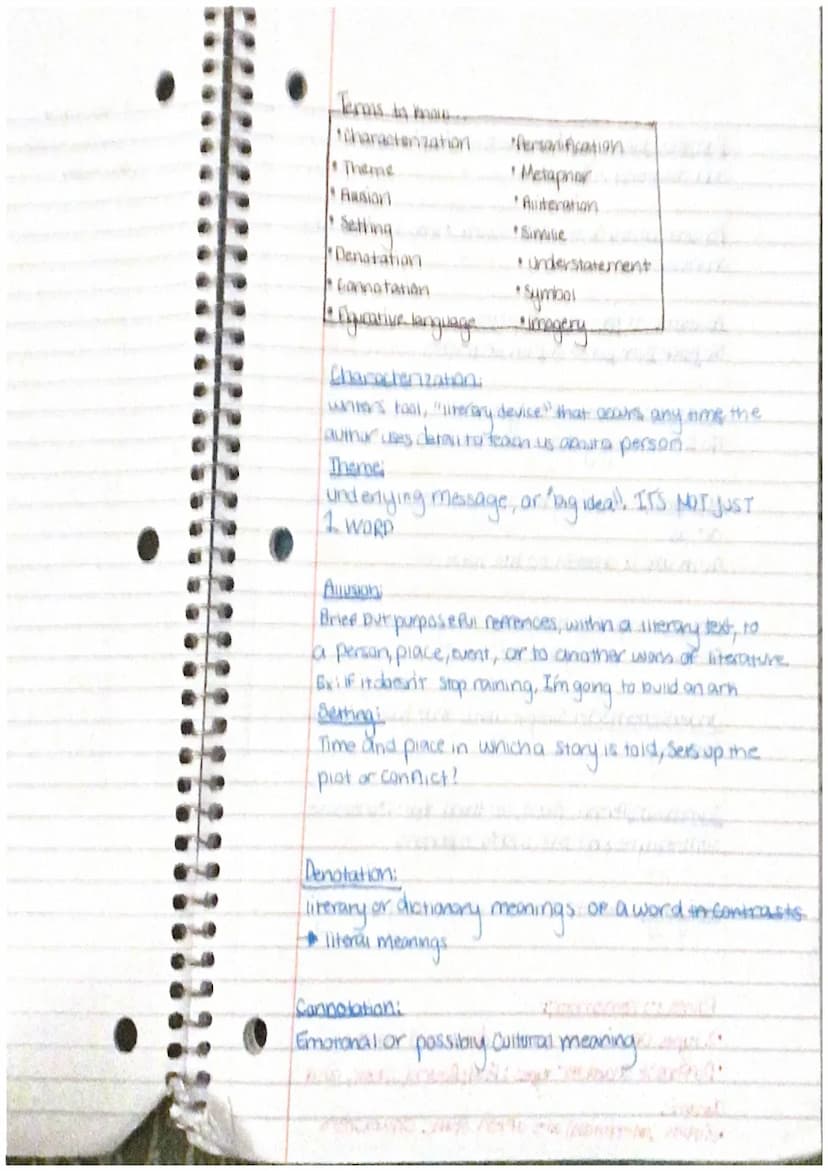 Terms to know
•Characterization •Personification
•Theme •Metaphor
•Allusion •Alliteration
•Setting •Simile
•Denotation •Understatement
•Connotation •Symbol
•Figurative language •Imagery
Characterization:
writers tool, "literary device" that occurs any time the
author uses detail to teach us about a person
Theme:
underlying message, or "big idea". IT'S NOT JUST
1 WORD
Allusion:
Brief but purposeful refrences, within a literary text, to
a person, place, event, or to another work of literature
Ex: if it doesn't stop raining, I'm going to build an ark
Setting:
Time and place in which a story is told, Sets up the
plot or conflict!
Denotation:
literary or dictionary meanings of a word in contrasts
→ literal meanings
Connotation:
Emotional or possibly cultural meaning